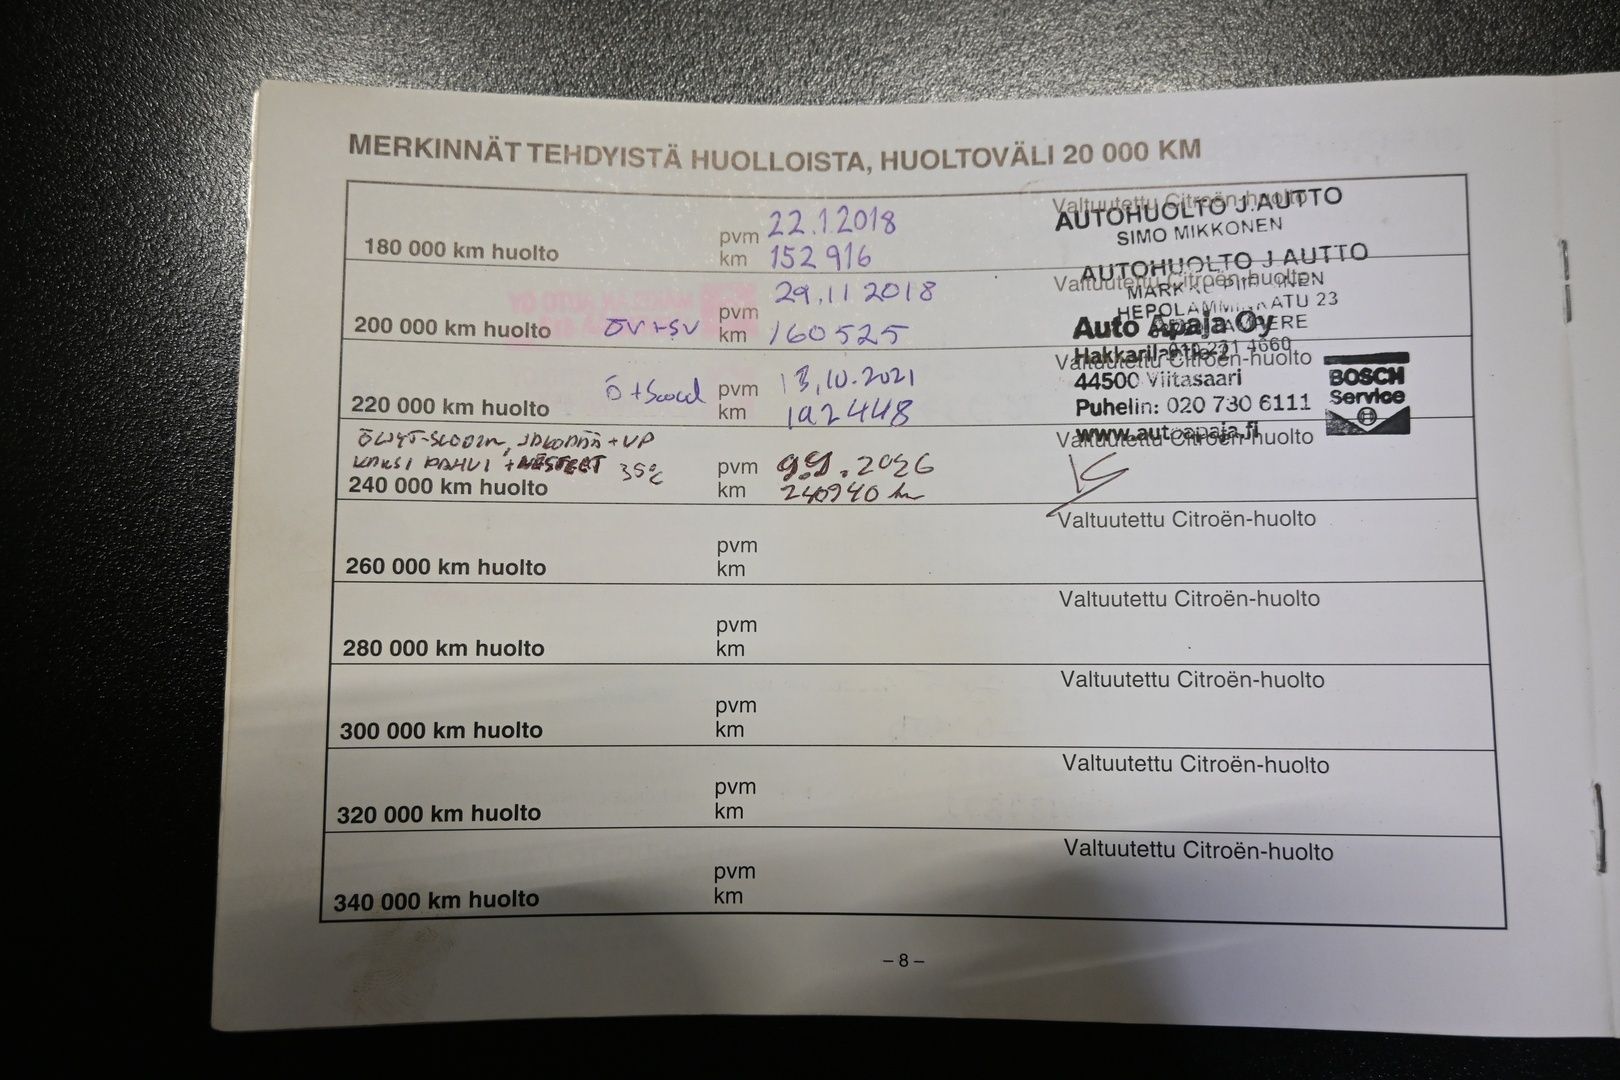 MERKINNÄT TEHDYISTÄ HUOLLOISTA, HUOLTOVÄLI 20 000 KM
180 000 km huolto
pvm 22.1.2018
km 152 916
Valtuutettu Citroën-huolto
AUTOHUOLTO J.AUTTO
SIMO MIKKONEN
200 000 km huolto
ÖV+SV
pvm 29.11 2018
km 160525
Valtuutettu Citroën-huolto
AUTOHUOLTO J AUTTO
HEPOLAMMINKATU 23
220 000 km huolto
pvm 13.10.2021
km 192448
Valtuutettu Citroën-huolto
Auto Apaja Oy
44500 Viitasaari
Puhelin: 020 730 6111
www.autoapaja.fi
BOSCH
Service
240 000 km huolto
pvm
km
Valtuutettu Citroën-huolto
260 000 km huolto
pvm
km
Valtuutettu Citroën-huolto
280 000 km huolto
pvm
km
Valtuutettu Citroën-huolto
300 000 km huolto
pvm
km
Valtuutettu Citroën-huolto
320 000 km huolto
pvm
km
Valtuutettu Citroën-huolto
340 000 km huolto
pvm
km
Valtuutettu Citroën-huolto
– 8 –